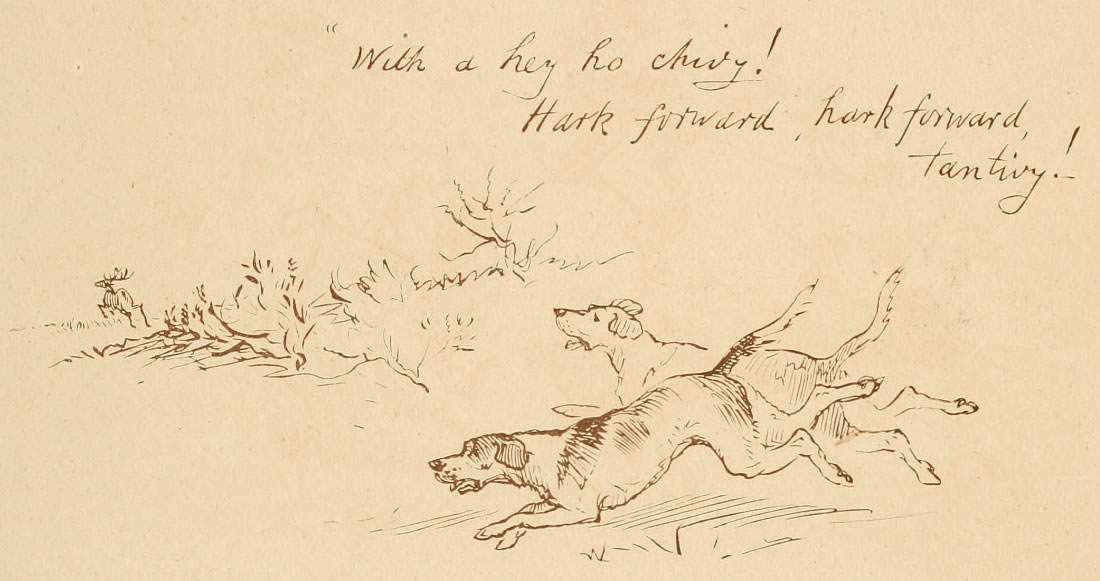 "With a hey ho chivy!
Hark forward, hark forward,
tantivy!—